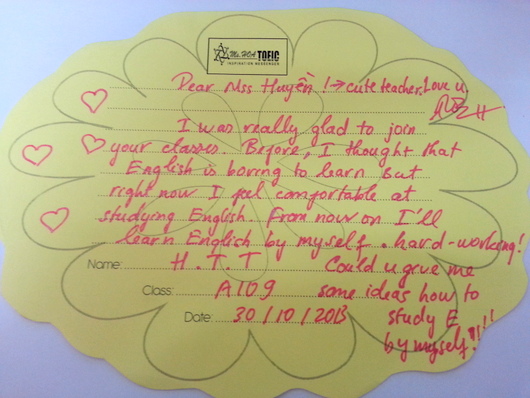 Ms. HOA TOEIC
INSPIRATION MESSENGER
Dear Mss Huyền ! → cute teacher. Love u.
I was really glad to join
your classes. Before, I thought that
English is boring to learn but
right now I feel comfortable at
studying English. From now on I'll
learn English by myself. hard-working!
Name: H.T.T
Class: A109
Date: 30/10/2013
Could u give me
some ideas how to
study E
by myself!!!!